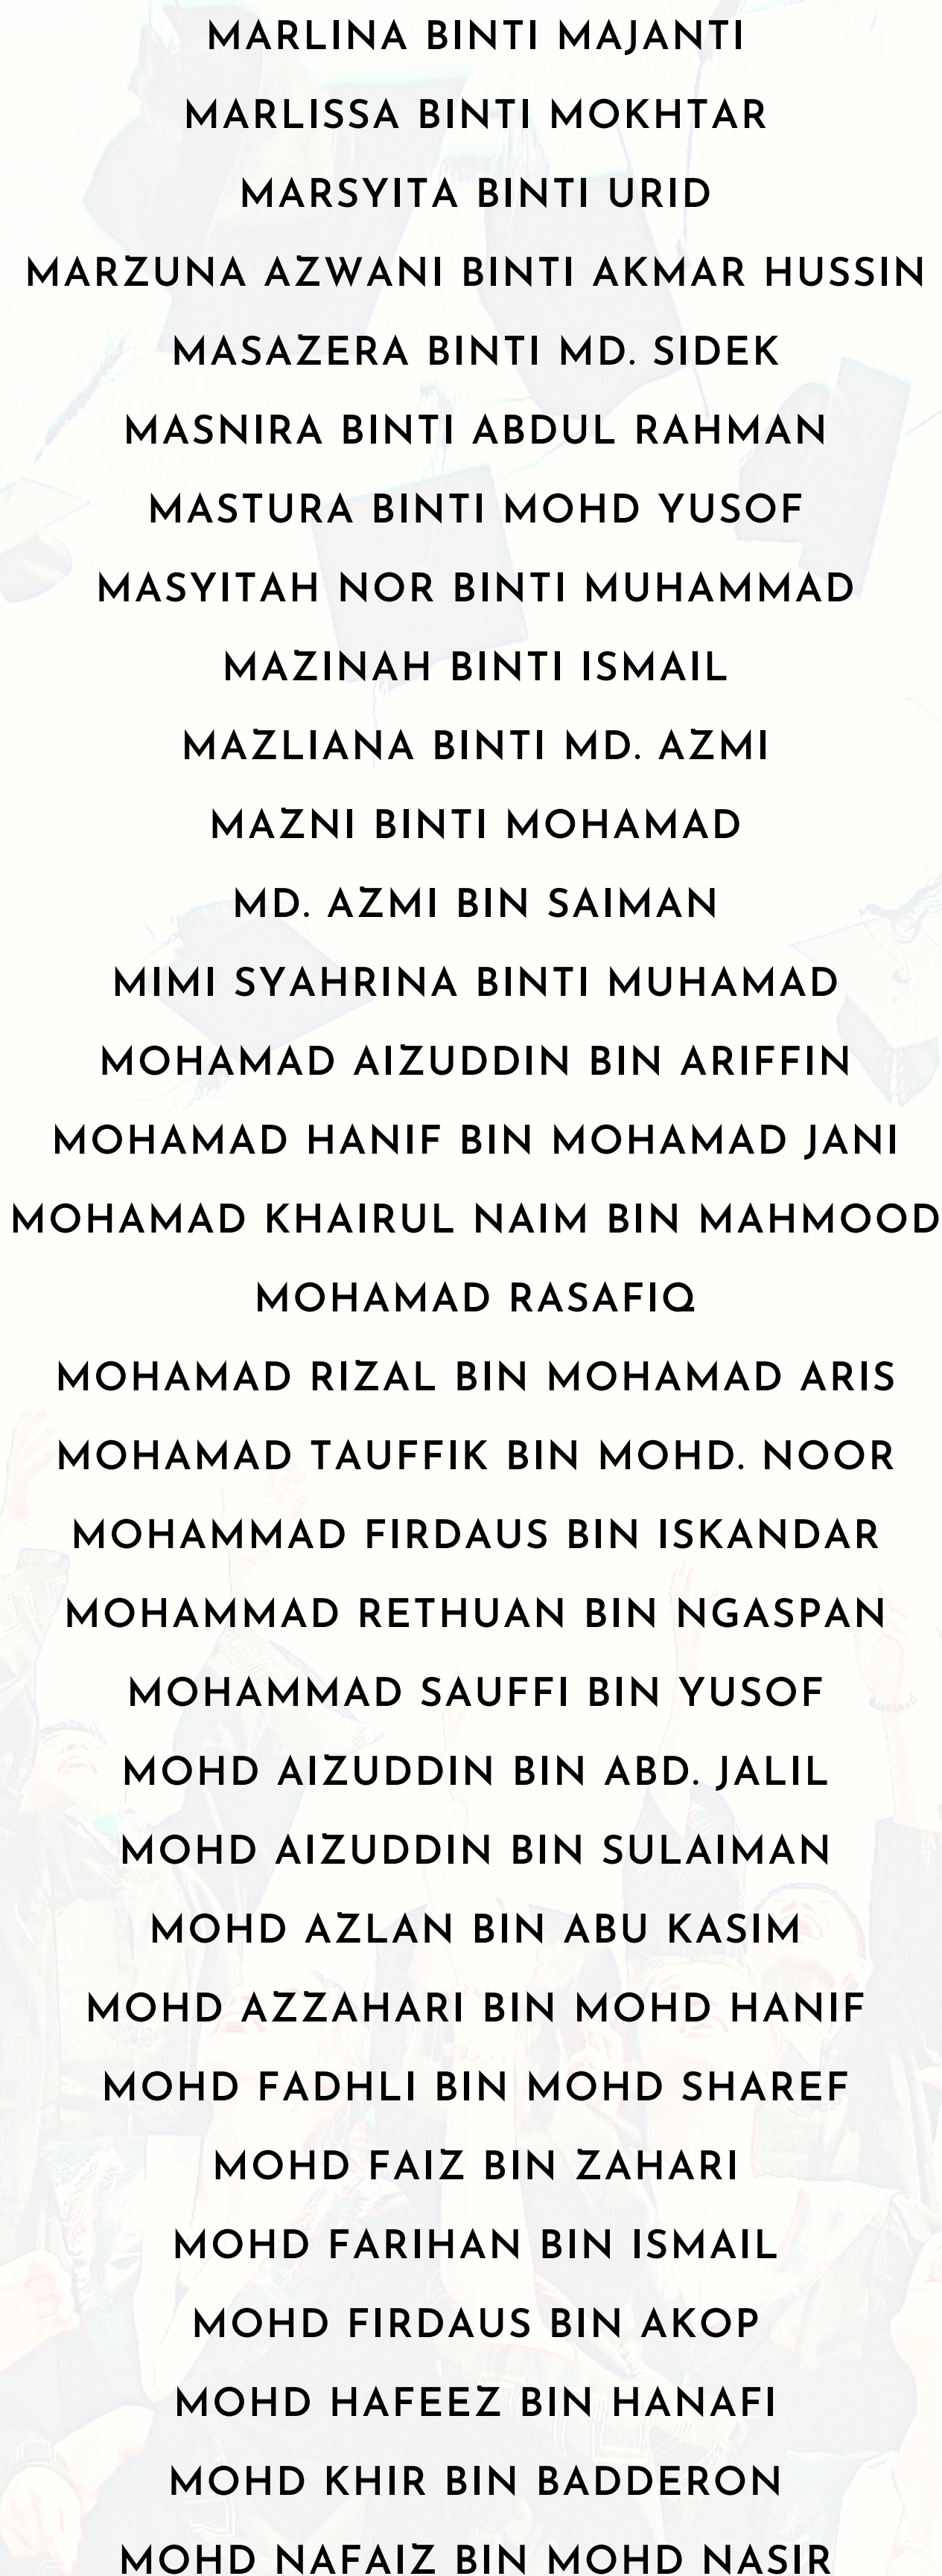 MARLINA BINTI MAJANTI
MARLISSA BINTI MOKHTAR
MARSYITA BINTI URID
MARZUNA AZWANI BINTI AKMAR HUSSIN
MASAZERA BINTI MD. SIDEK
MASNIRA BINTI ABDUL RAHMAN
MASTURA BINTI MOHD YUSOF
MASYITAH NOR BINTI MUHAMMAD
MAZINAH BINTI ISMAIL
MAZLIANA BINTI MD. AZMI
MAZNI BINTI MOHAMAD
MD. AZMI BIN SAIMAN
MIMI SYAHRINA BINTI MUHAMAD
MOHAMAD AIZUDDIN BIN ARIFFIN
MOHAMAD HANIF BIN MOHAMAD JANI
MOHAMAD KHAIRUL NAIM BIN MAHMOOD
MOHAMAD RASAFIQ
MOHAMAD RIZAL BIN MOHAMAD ARIS
MOHAMAD TAUFFIK BIN MOHD. NOOR
MOHAMMAD FIRDAUS BIN ISKANDAR
MOHAMMAD RETHUAN BIN NGASPAN
MOHAMMAD SAUFFI BIN YUSOF
MOHD AIZUDDIN BIN ABD. JALIL
MOHD AIZUDDIN BIN SULAIMAN
MOHD AZLAN BIN ABU KASIM
MOHD AZZAHARI BIN MOHD HANIF
MOHD FADHLI BIN MOHD SHAREF
MOHD FAIZ BIN ZAHARI
MOHD FARIHAN BIN ISMAIL
MOHD FIRDAUS BIN AKOP
MOHD HAFEEZ BIN HANAFI
MOHD KHIR BIN BADDERON
MOHD NAFAIZ BIN MOHD NASIR